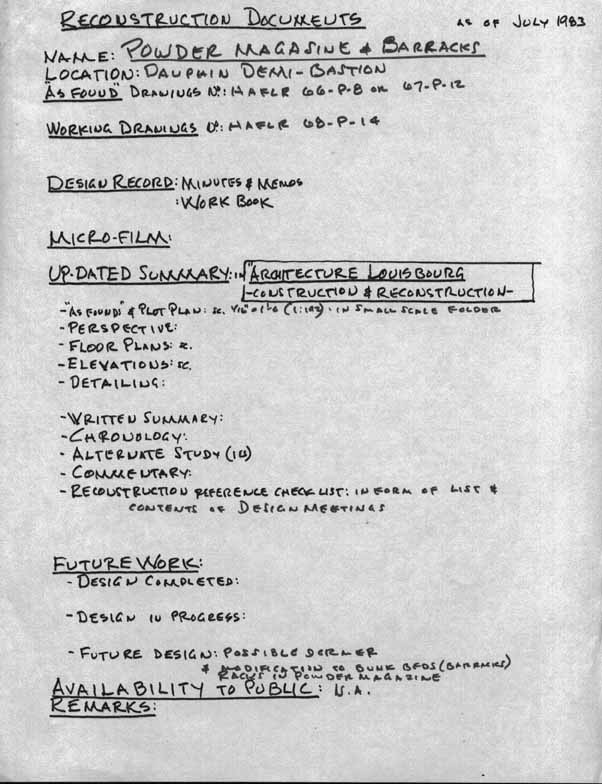 RECONSTRUCTION DOCUMENTS AS OF JULY 1983
NAME: POWDER MAGASINE & BARRACKS
LOCATION: DAUPHIN DEMI-BASTION
"AS FOUND" DRAWINGS Nº: HAFLR 66-P-8 OR 67-P-12
WORKING DRAWINGS Nº: HAFLR 68-P-14
DESIGN RECORD: MINUTES & MEMOS
: WORK BOOK
MICRO-FILM:
UP-DATED SUMMARY: in "ARCHITECTURE LOUISBOURG
-CONSTRUCTION & RECONSTRUCTION-
- "AS FOUND" & PLOT PLAN: sc. 1/16" = 1'-0 (1:192) - IN SMALL SCALE FOLDER
- PERSPECTIVE:
- FLOOR PLANS: sc.
- ELEVATIONS: sc.
- DETAILING:
- WRITTEN SUMMARY:
- CHRONOLOGY:
- ALTERNATE STUDY (IES)
- COMMENTARY:
- RECONSTRUCTION REFERENCE CHECK LIST: IN FORM OF LIST &
CONTENTS OF DESIGN MEETINGS
FUTURE WORK:
- DESIGN COMPLETED:
- DESIGN IN PROGRESS:
- FUTURE DESIGN: POSSIBLE DORMER
& MODIFICATION TO BUNK BEDS (BARRACKS)
RACKS IN POWDER MAGAZINE
AVAILABILITY TO PUBLIC: N.A.
REMARKS: